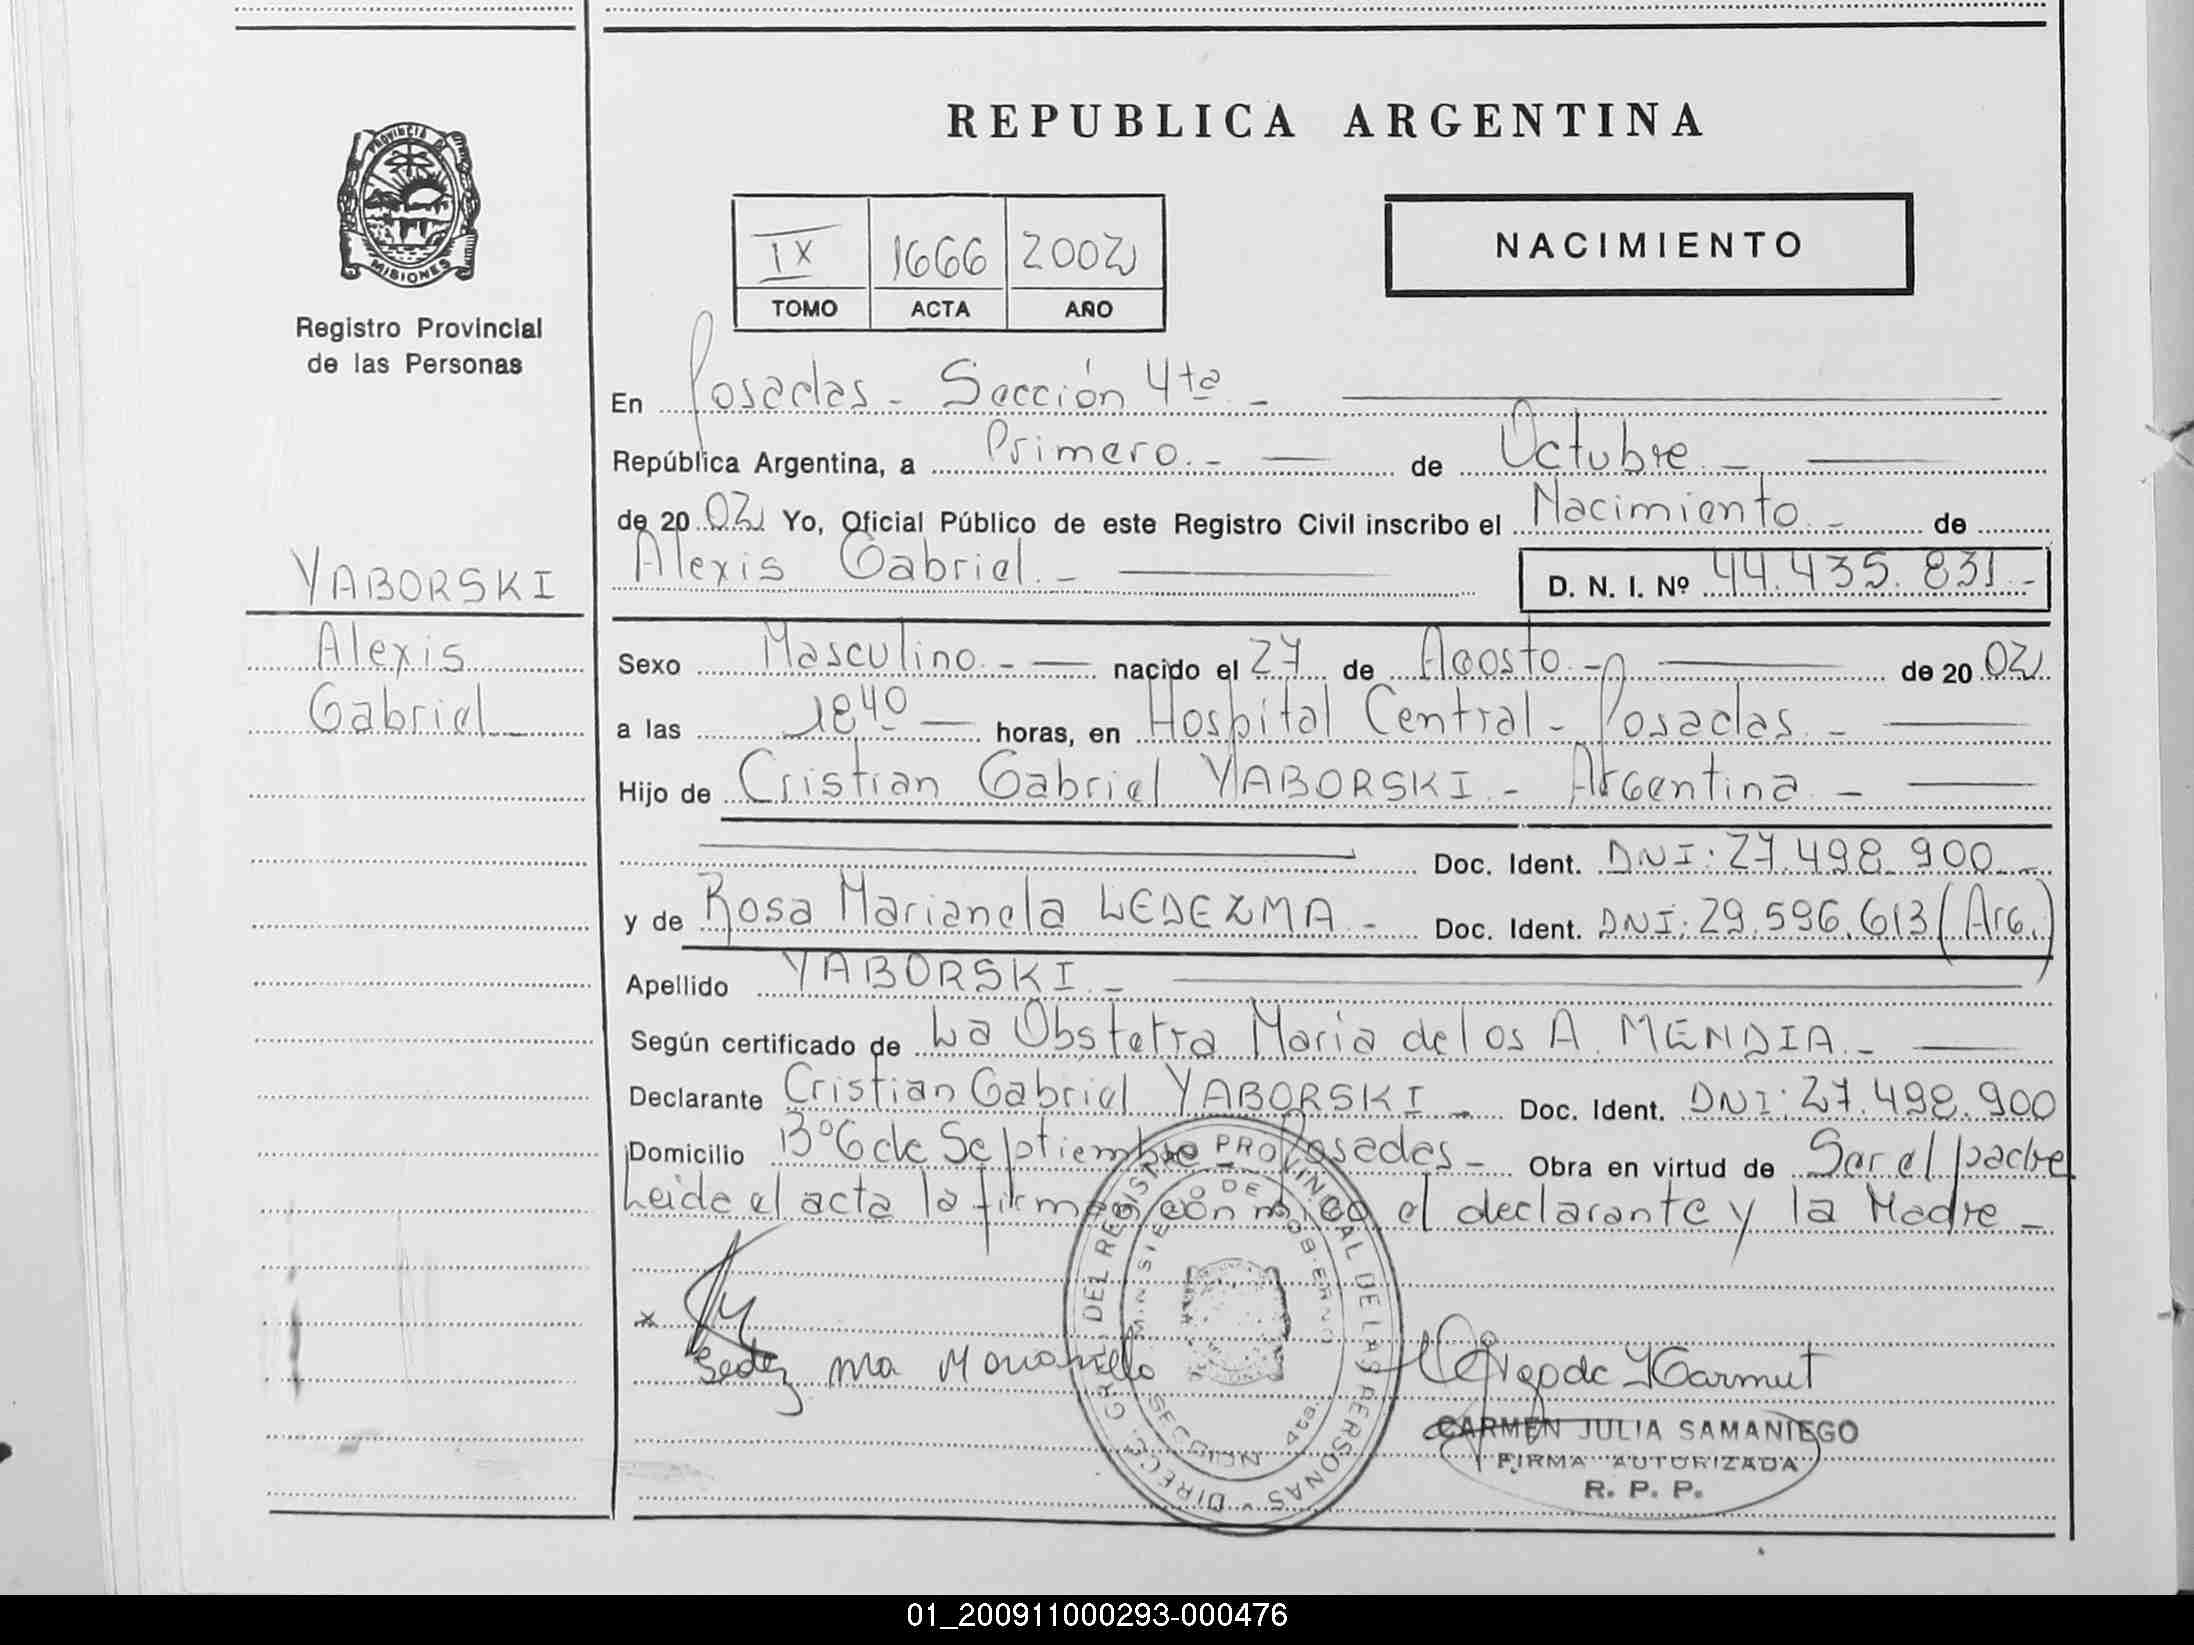 REPUBLICA ARGENTINA
PROVINCIA DE
MISIONES
Registro Provincial
de las Personas
IX 1666 2002
TOMO ACTA AÑO
NACIMIENTO
En Posadas - Sección 4ta. -
República Argentina, a Primero. - de Octubre. -
de 20 02 Yo, Oficial Público de este Registro Civil inscribo el Nacimiento. - de
Alexis Gabriel. - D. N. I. Nº 44.435.831. -
YABORSKI
Alexis
Gabriel. -
Sexo Masculino. - nacido el 27 de Agosto. - de 20 02
a las 1840 horas, en Hospital Central - Posadas. -
Hijo de Cristian Gabriel YABORSKI. - Argentina. -
Doc. Ident. DNI: 27.498.900. -
y de Rosa Marianela LEDEZMA. - Doc. Ident. DNI: 29.596.613 (Arg.)
Apellido YABORSKI. -
Según certificado de La Obstetra Maria de los A. MENDIA. -
Declarante Cristian Gabriel YABORSKI. - Doc. Ident. DNI: 27.498.900
Domicilio Bº 6 de Septiembre Posadas - Obra en virtud de Ser el padre
Leida el acta la firman conmigo el declarante y la Madre -
DIRECC. GRAL. DEL REGISTRO PROVINCIAL DE LAS PERSONAS
MINISTERIO DE GOBIERNO
SECCION 4ta.
x
CARMEN JULIA SAMANIEGO
FIRMA AUTORIZADA
R. P. P.
01_200911000293-000476